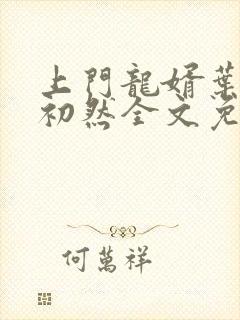 上門龍婿葉
初然全文免
何萬祥